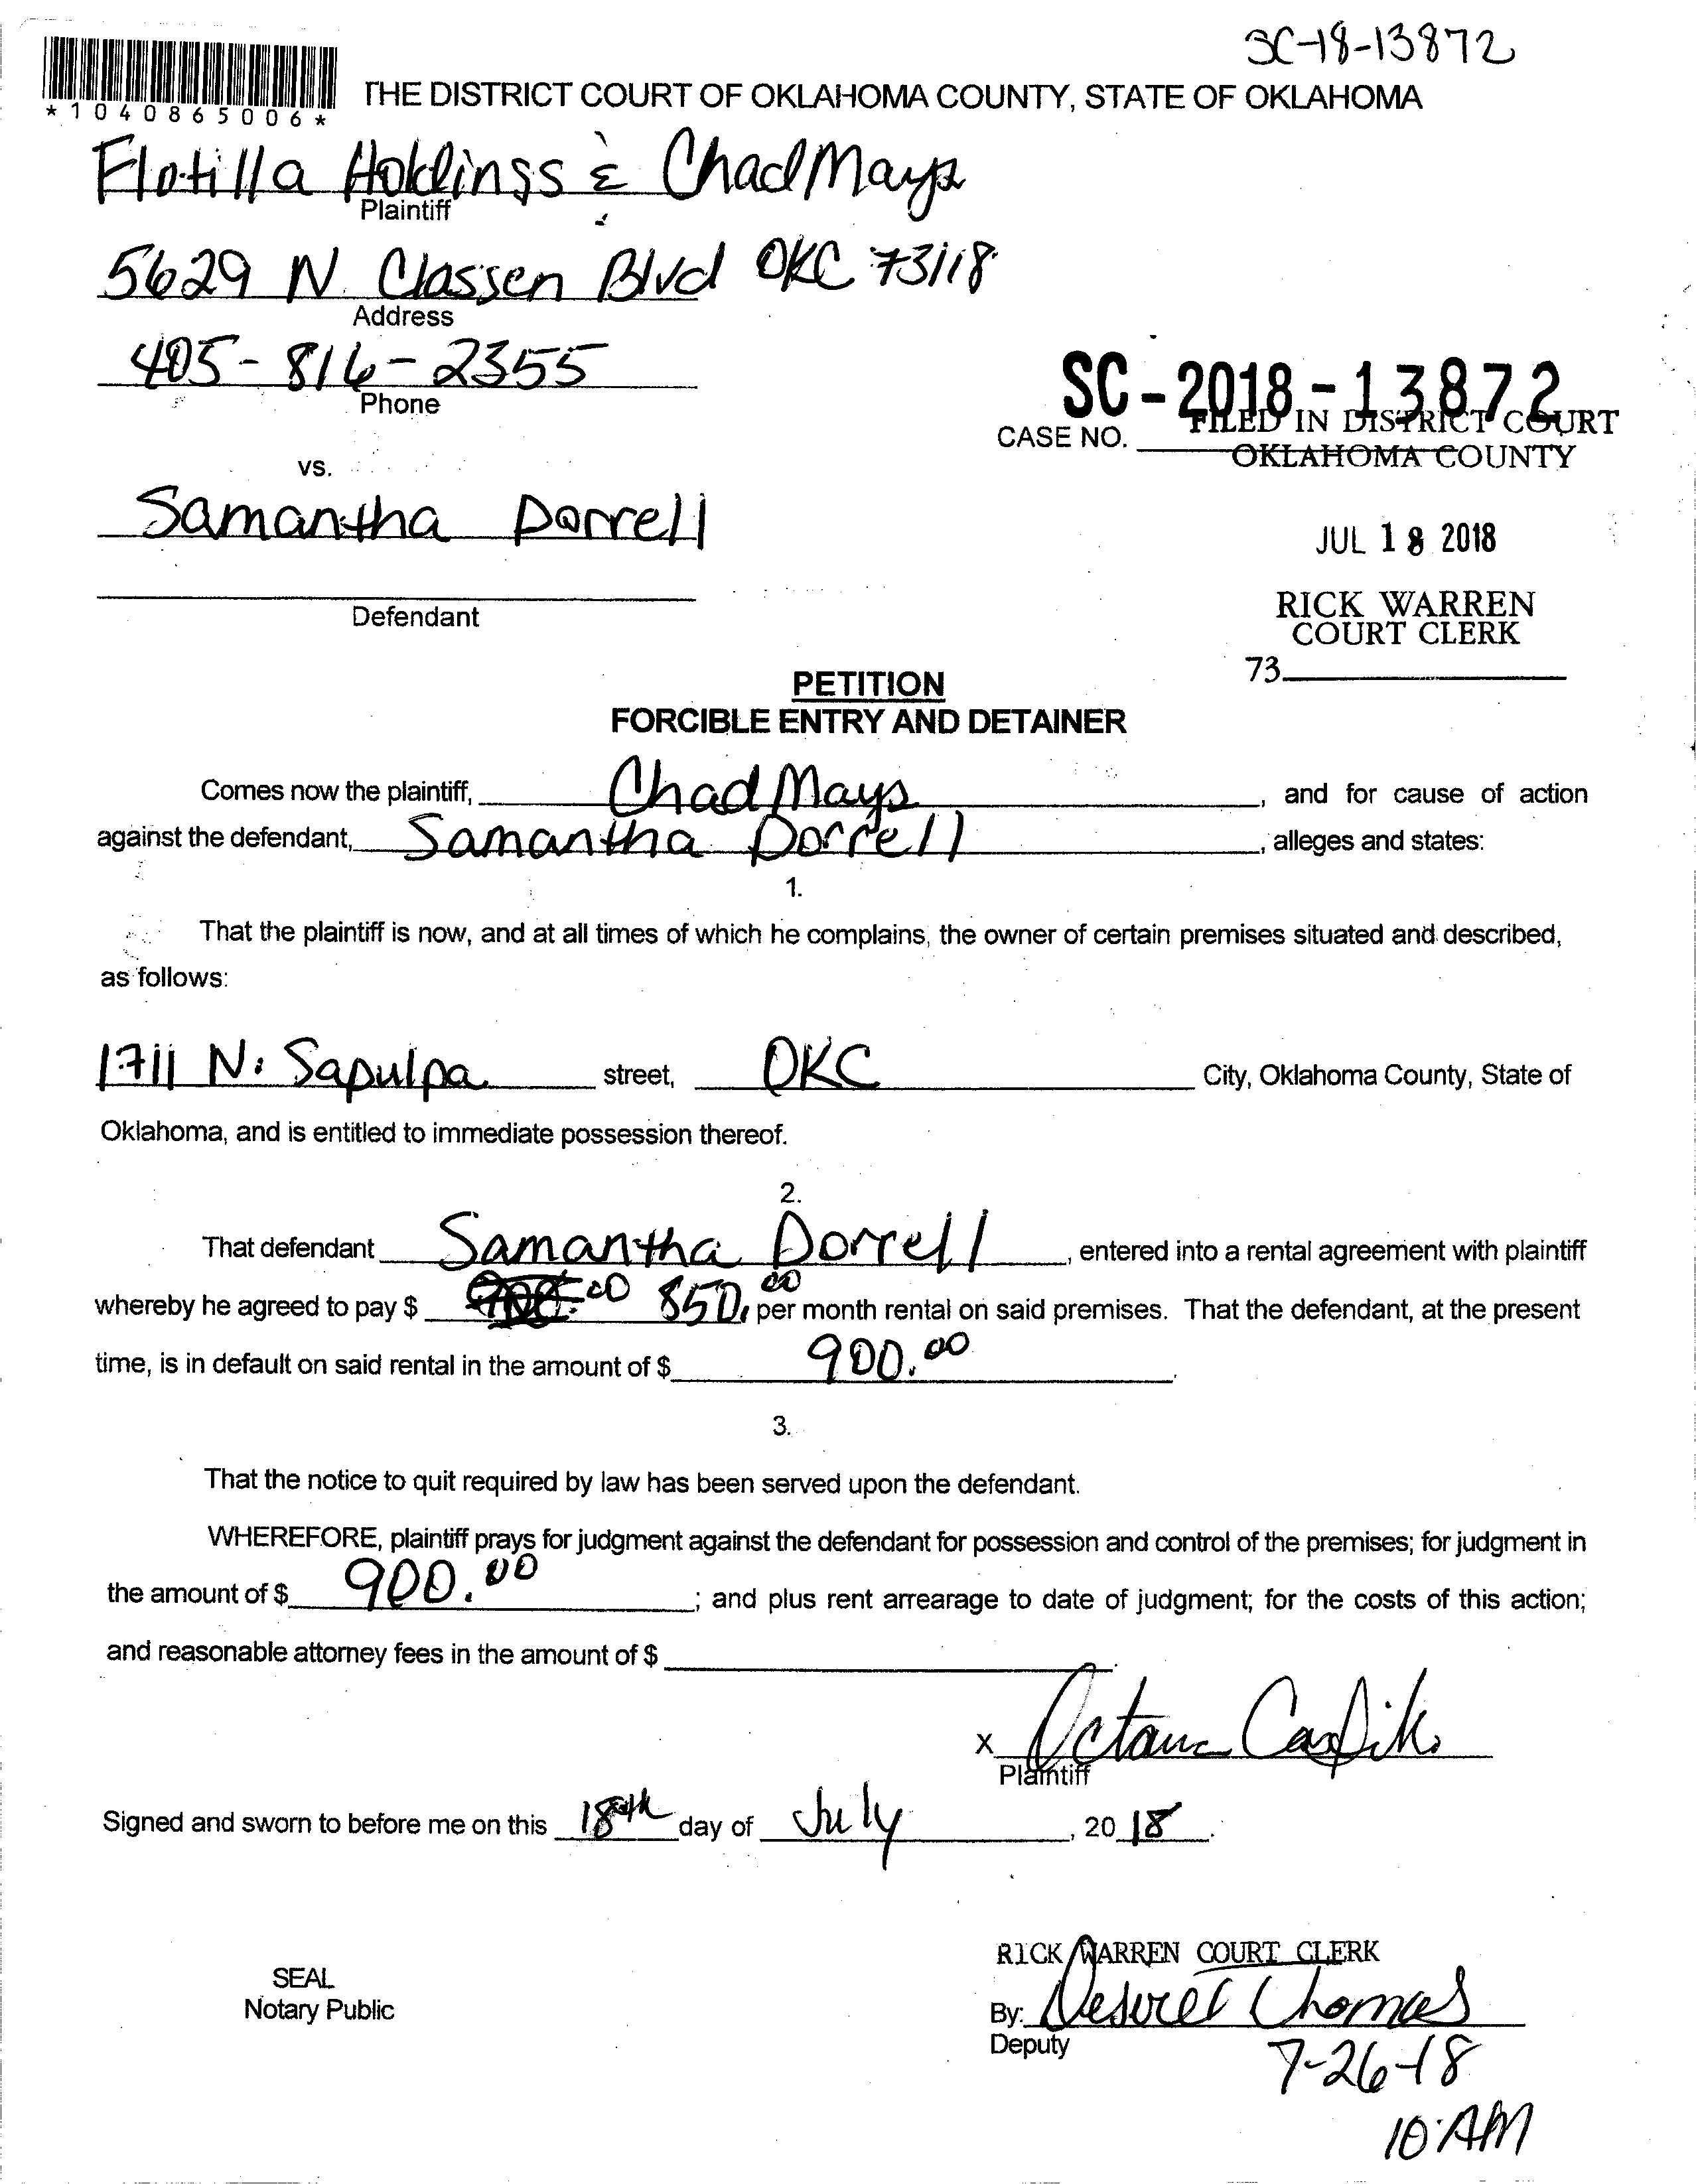 SC-18-13872
*1040865006*
THE DISTRICT COURT OF OKLAHOMA COUNTY, STATE OF OKLAHOMA
Flotilla Holdings & Chad Mays
Plaintiff
5629 N. Classen Blvd OKC 73118
Address
405-816-2355
Phone
SC-2018-13872
CASE NO.
FILED IN DISTRICT COURT
OKLAHOMA COUNTY
vs.
Samantha Dorrell
JUL 18 2018
Defendant
RICK WARREN
COURT CLERK
73
PETITION
FORCIBLE ENTRY AND DETAINER
Comes now the plaintiff, Chad Mays, and for cause of action
against the defendant, Samantha Dorrell, alleges and states:
1.
That the plaintiff is now, and at all times of which he complains, the owner of certain premises situated and described,
as follows:
1711 N. Sapulpa street, OKC City, Oklahoma County, State of
Oklahoma, and is entitled to immediate possession thereof.
2.
That defendant Samantha Dorrell, entered into a rental agreement with plaintiff
whereby he agreed to pay $ 850.00 per month rental on said premises. That the defendant, at the present
time, is in default on said rental in the amount of $ 900.00.
3.
That the notice to quit required by law has been served upon the defendant.
WHEREFORE, plaintiff prays for judgment against the defendant for possession and control of the premises; for judgment in
the amount of $ 900.00; and plus rent arrearage to date of judgment; for the costs of this action;
and reasonable attorney fees in the amount of $
X
Plaintiff
Signed and sworn to before me on this 18th day of July, 2018.
RICK WARREN COURT CLERK
SEAL
Notary Public
By: Thomas
Deputy
7-26-18
10 AM